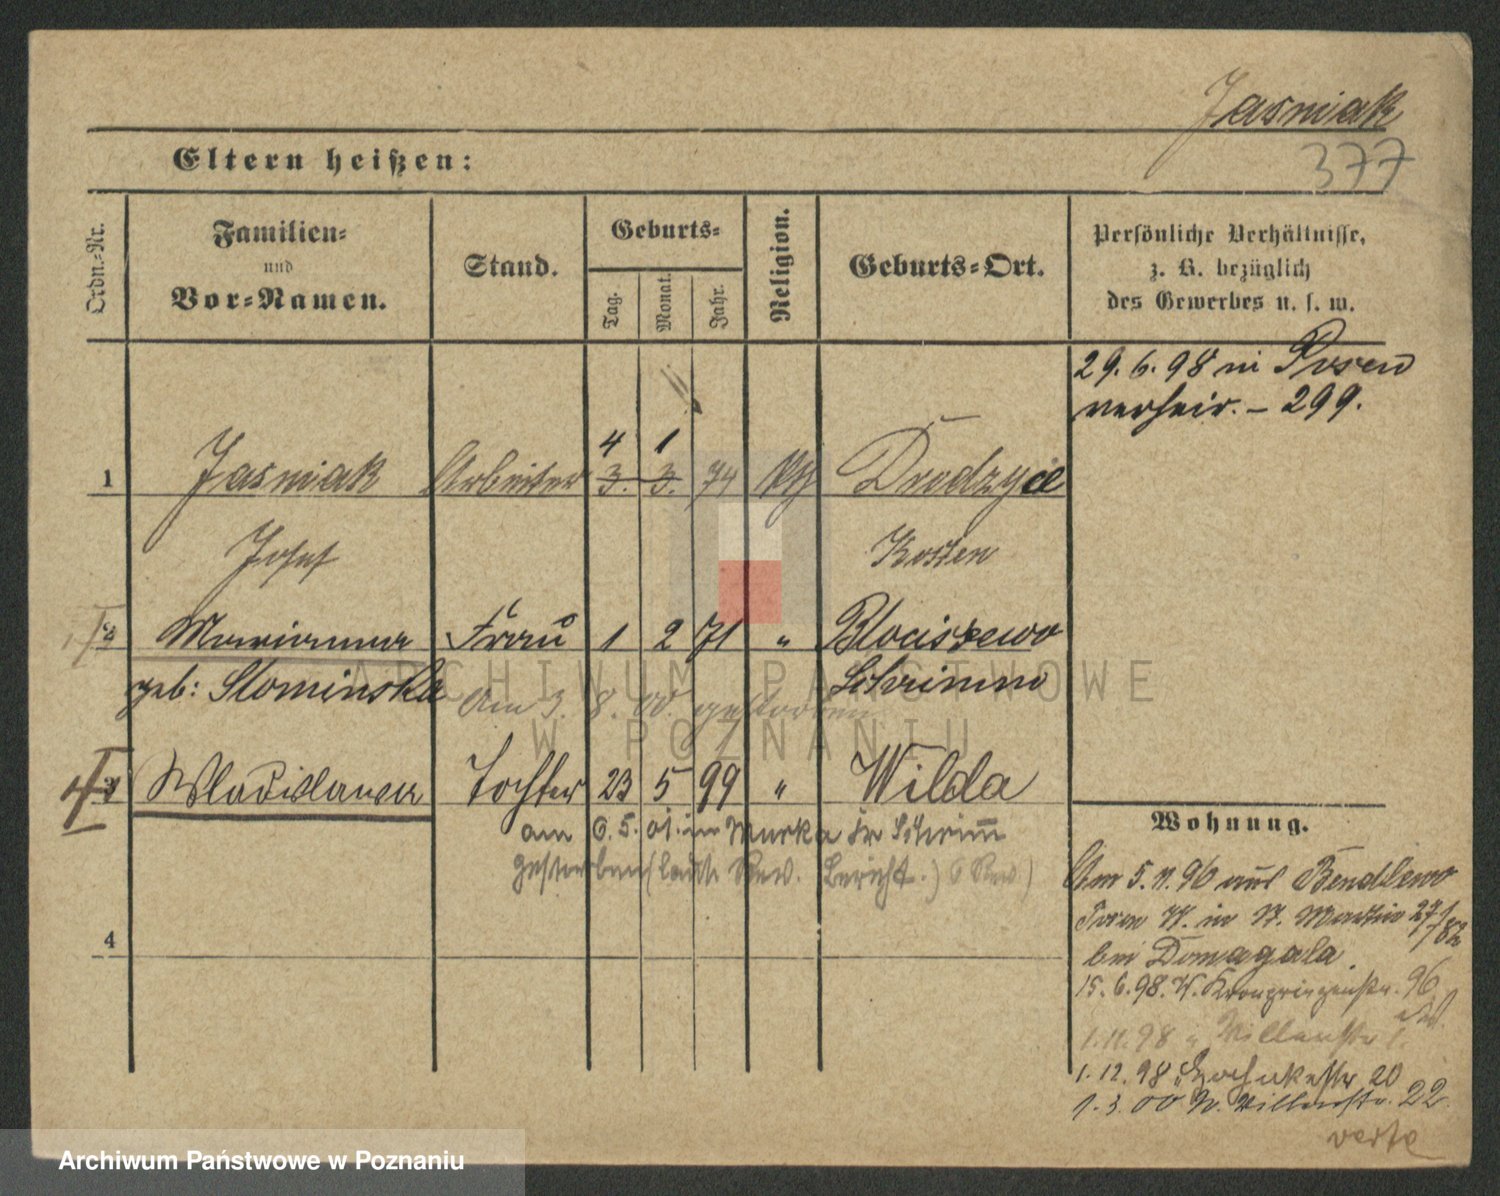 Jasniak
377
Eltern heißen:
Ordn.-Nr.
Familien-
und
Vor-Namen.
Stand.
Geburts-
Tag.
Monat.
Jahr.
Religion.
Geburts-Ort.
Persönliche Verhältnisse,
z. B. bezüglich
des Gewerbes u. s. w.
29. 6. 98 in Posen
verheir. - 299.
4 1
1 Jasniak Arbeiter 3. 3. 74 kth
Josef Kosten
2 Marianna Frau 1 2 71 " Blociszewo
geb: Slominska Schrimm
Am 3. 8. 00. gestorben
3 Wladislawa Tochter 23 5 99 " Wilda
am 6. 5. 01. in Murka Kr Schrimm
gestorben (laut Rev. Bericht.)
4
Wohnung.
Am 5. 11. 96 aus Bendlewo
St. Martin 27/
bei Domagala
15. 6. 98. W. Kronprinzenstr. 96
1. 11. 98 "
1. 12. 98 " 20
1. 3. 00 22
verte
ARCHIWUM PAŃSTWOWE
W POZNANIU
Archiwum Państwowe w Poznaniu